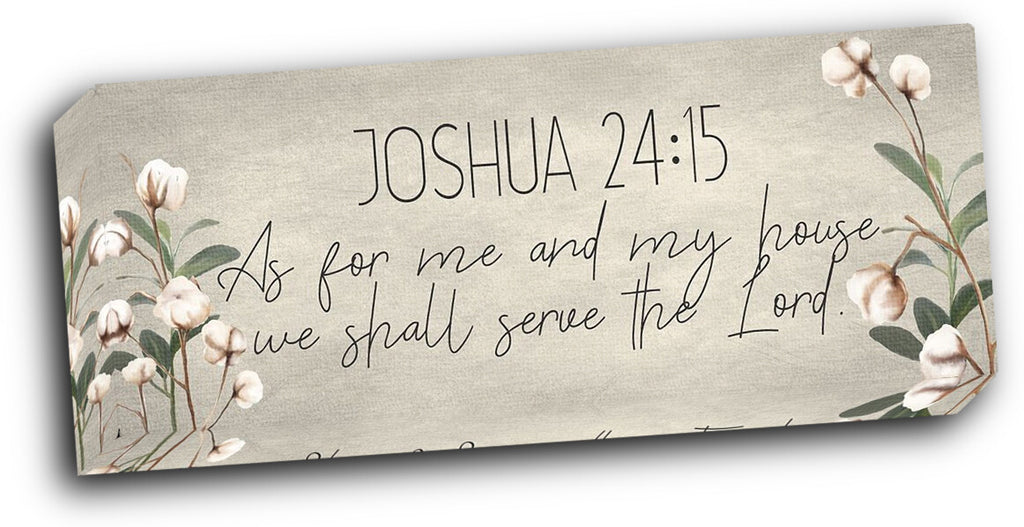 JOSHUA 24:15
As for me and my house
we shall serve the Lord.